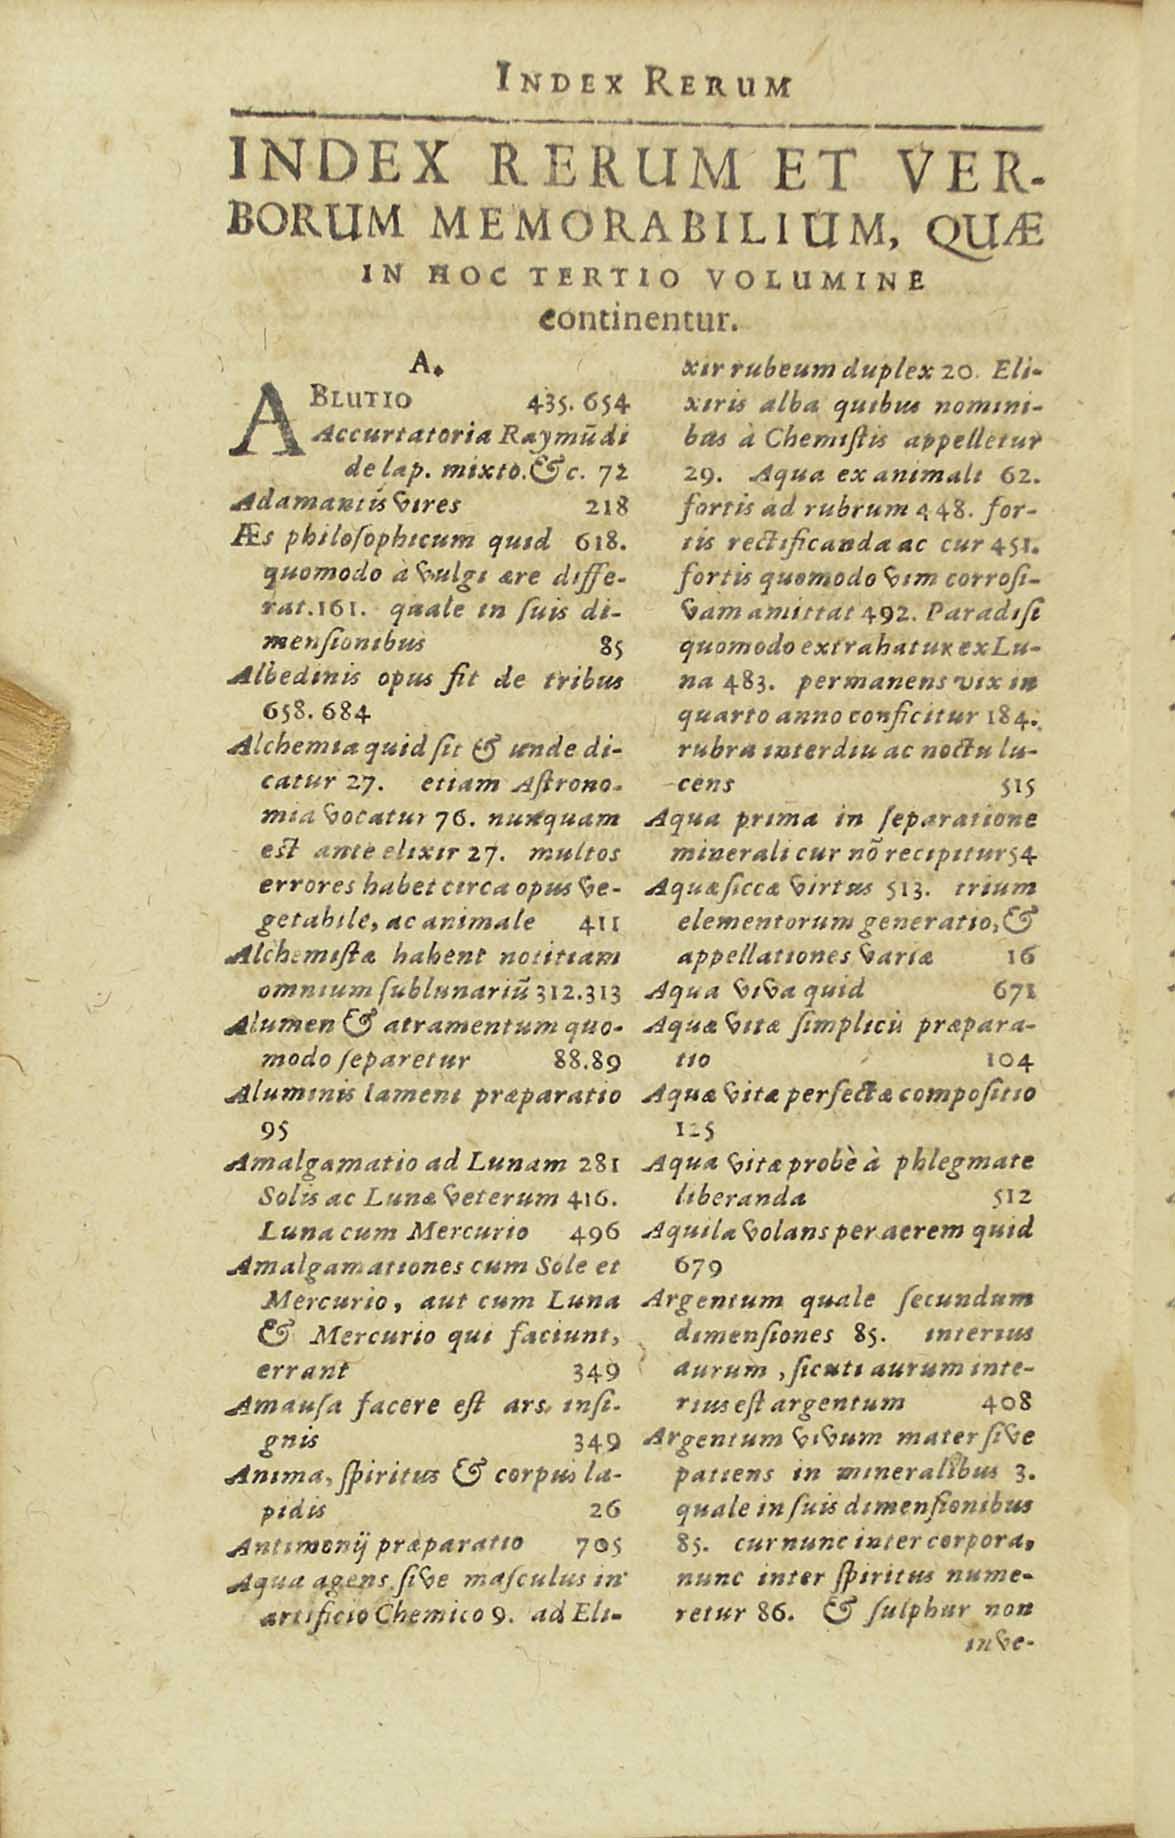 INDEX RERUM
INDEX RERUM ET VER-
BORUM MEMORABILIUM, QUÆ
IN HOC TERTIO VOLUMINE
continentur.
A.
ABLUTIO 435. 654
Accurtatoria Raymūdi
de lap. mixto. &c. 72
Adamantis vires 218
Æs philoſophicum quid 618.
quomodo à vulgi ære diffe-
rat. 161. quale in ſuis di-
menſionibus 85
Albedinis opus fit de tribus
658. 684
Alchemia quid ſit & unde di-
catur 27. etiam Aſtrono-
mia vocatur 76. nunquam
eſt ante elixir 27. multos
errores habet circa opus ve-
getabile, ac animale 411
Alchemiſtæ habent notitiam
omnium ſublunariū 312. 313
Alumen & atramentum quo-
modo ſeparetur 88. 89
Aluminis lameni præparatio
95
Amalgamatio ad Lunam 281
Solis ac Lunæ veterum 416.
Luna cum Mercurio 496
Amalgamationes cum Sole et
Mercurio, aut cum Luna
& Mercurio qui faciunt,
errant 349
Amauſa facere eſt ars inſi-
gnis 349
Anima, ſpiritus & corpus la-
pidis 26
Antimonij præparatio 705
Aqua agens ſive maſculus in
artificio Chemico 9. ad Eli-
xir rubeum duplex 20. Eli-
xiris alba quibus nomini-
bus à Chemiſtis appelletur
29. Aqua ex animali 62.
fortis ad rubrum 448. for-
tis rectificanda ac cur 451.
fortis quomodo vim corroſi-
vam amittat 492. Paradiſi
quomodo extrahatur ex Lu-
na 483. permanens vix in
quarto anno conficitur 184.
rubra interdiu ac noctu lu-
cens 515
Aqua prima in ſeparatione
minerali cur nō recipitur 54
Aquæ ſiccæ virtus 513. trium
elementorum generatio, &
appellationes variæ 16
Aqua viva quid 671
Aquæ vitæ ſimplicis præpara-
tio 104
Aquæ vitæ perfectæ compoſitio
125
Aqua vitæ probè à phlegmate
liberanda 512
Aquila volans per aerem quid
679
Argentum quale ſecundum
dimenſiones 85. interius
aurum, ſicuti aurum inte-
rius eſt argentum 408
Argentum vivum mater ſive
patiens in mineralibus 3.
quale in ſuis dimenſionibus
85. cur nunc inter corpora,
nunc inter ſpiritus nume-
retur 86. & ſulphur non
inve-